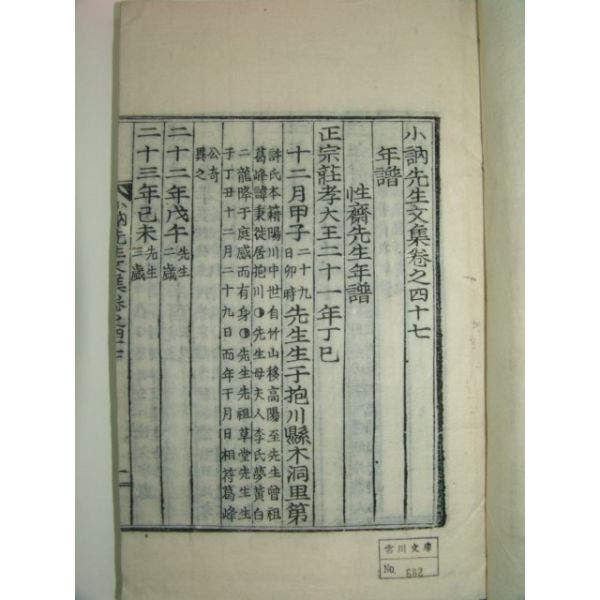 小訥先生文集卷之四十七
年譜
性齋先生年譜
正宗莊孝大王二十一年丁巳
十二月甲子二十九日卯時先生生于抱川縣木洞里第
許氏本籍陽川中世自竹山移高陽至先生曾祖
葛峰諱秉徙居抱川○先生母夫人李氏夢黃白
二龍降于庭感而有身○先生先祖草堂先生生
子丁丑十二月二十九日而年干月日相符葛峰
公奇異之
二十二年戊午先生二歲
二十三年己未先生三歲
小訥先生文集卷之四十七
一
雲川文庫
No. 562